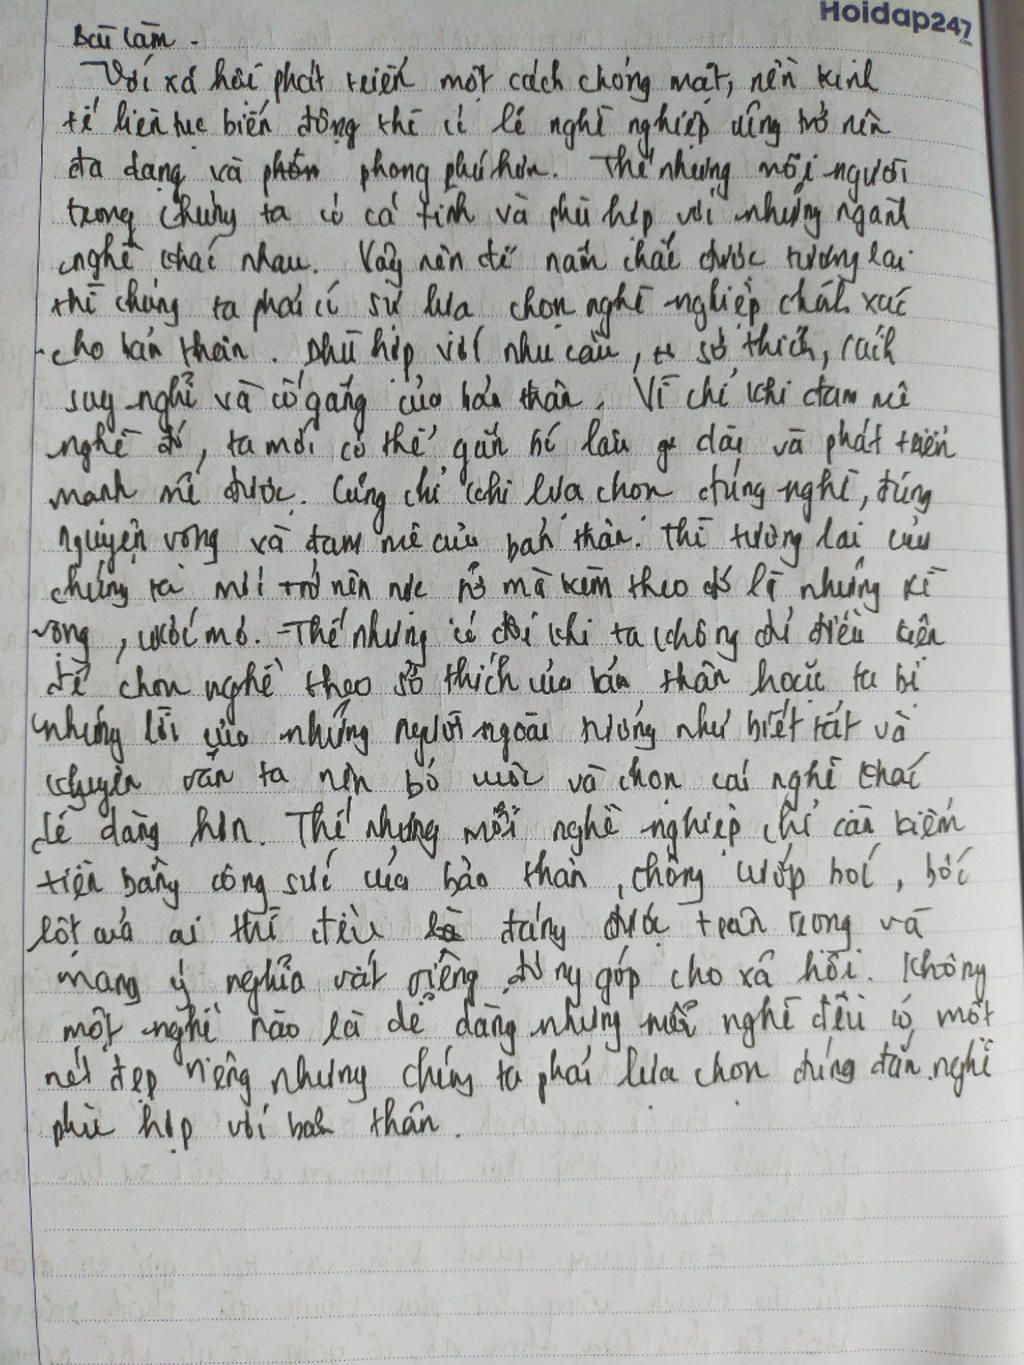 Hoidap247
.com
Bài làm.
Với xã hội phát triển một cách chóng mặt, nền kinh
tế liên tục biến động thì có lẽ nghề nghiệp cũng trở nên
đa dạng và phón phong phú hơn. Thế nhưng mỗi người
trong chúng ta có cá tính và phù hợp với những ngành
nghề khác nhau. Vậy nên để nắm chắc được tương lai
thì chúng ta phải có sự lựa chọn nghề nghiệp chính xác
cho bản thân. Phù hợp với nhu cầu, sở thích, cách
suy nghĩ và cố gắng của bản thân. Vì chỉ khi đam mê
nghề đó, ta mới có thể gắn bó lâu dài và phát triển
mạnh mẽ được. Cũng chỉ khi lựa chọn đúng nghề, đúng
nguyện vọng và đam mê của bản thân. Thì tương lai của
chúng ta mới trở nên rực rỡ mà kèm theo đó là những kì
vọng, ước mơ. Thế nhưng có đôi khi ta không đủ điều kiện
để chọn nghề theo sở thích của bản thân hoặc ta bị
những lời của những người ngoài tưởng như biết tất và
khuyên răn ta nên bỏ cuộc và chọn cái nghề khác
dễ dàng hơn. Thế nhưng mỗi nghề nghiệp chỉ cần kiếm
tiền bằng công sức của bản thân, không cướp bóc, bóc
lột của ai thì đều là đáng được trân trọng và
mang ý nghĩa vất riêng đóng góp cho xã hội. Không
một nghề nào là dễ dàng nhưng mỗi nghề đều có một
nét đẹp riêng nhưng chúng ta phải lựa chọn đúng đắn nghề
phù hợp với bản thân.